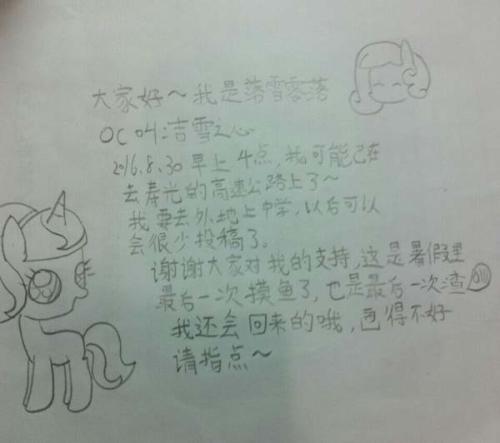 大家好～我是落雪零落
OC叫:洁雪之心
2016.8.30早上4点,我可能已在
去寿光的高速公路上了～
我要去外地上中学,以后可以
会很少投稿了。
谢谢大家对我的支持,这是暑假里
最后一次摸鱼了,也是最后一次渣
我还会回来的哦,画得不好
请指点～